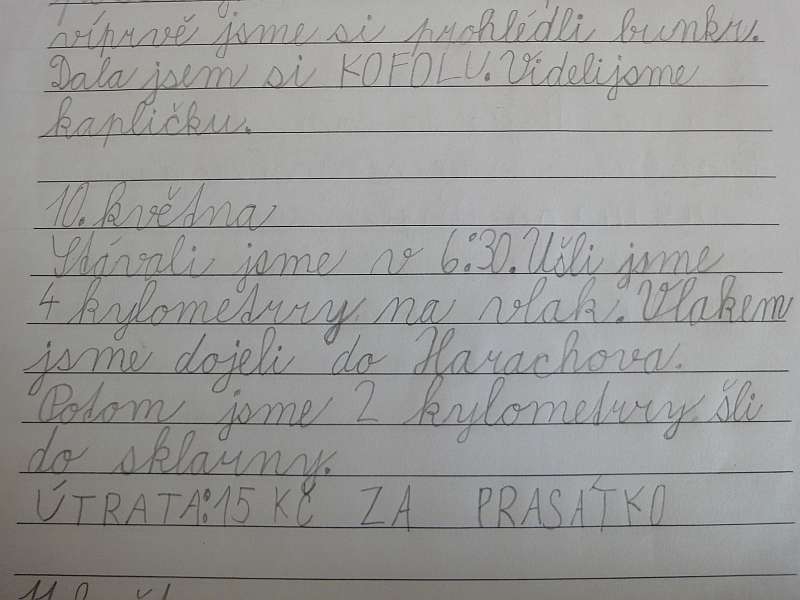 víprvě jsme si prohlédli bunkr.
Dala jsem si KOFOLU. Videli jsme
kapličku.
10. května
Stávali jsme v 6:30. Ušli jsme
4 kylometry na vlak. Vlakem
jsme dojeli do Harachova.
Potom jsme 2 kylometry šli
do sklarny.
ÚTRATA: 15 KČ ZA PRASÁTKO